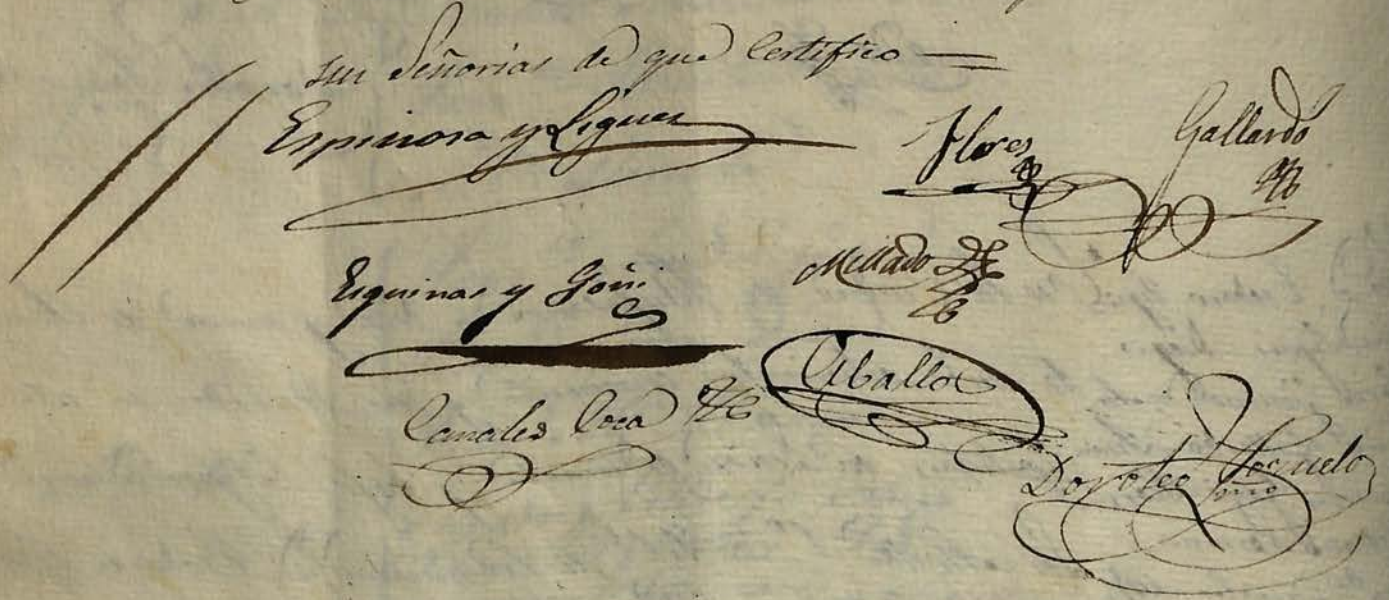 sus Señorias de que Certifico
Espinosa y Liguez
Flores
Gallardo
Esquinas y Goñi
Mellado
Canales Coca
Ceballos
Doroteo Toquelo